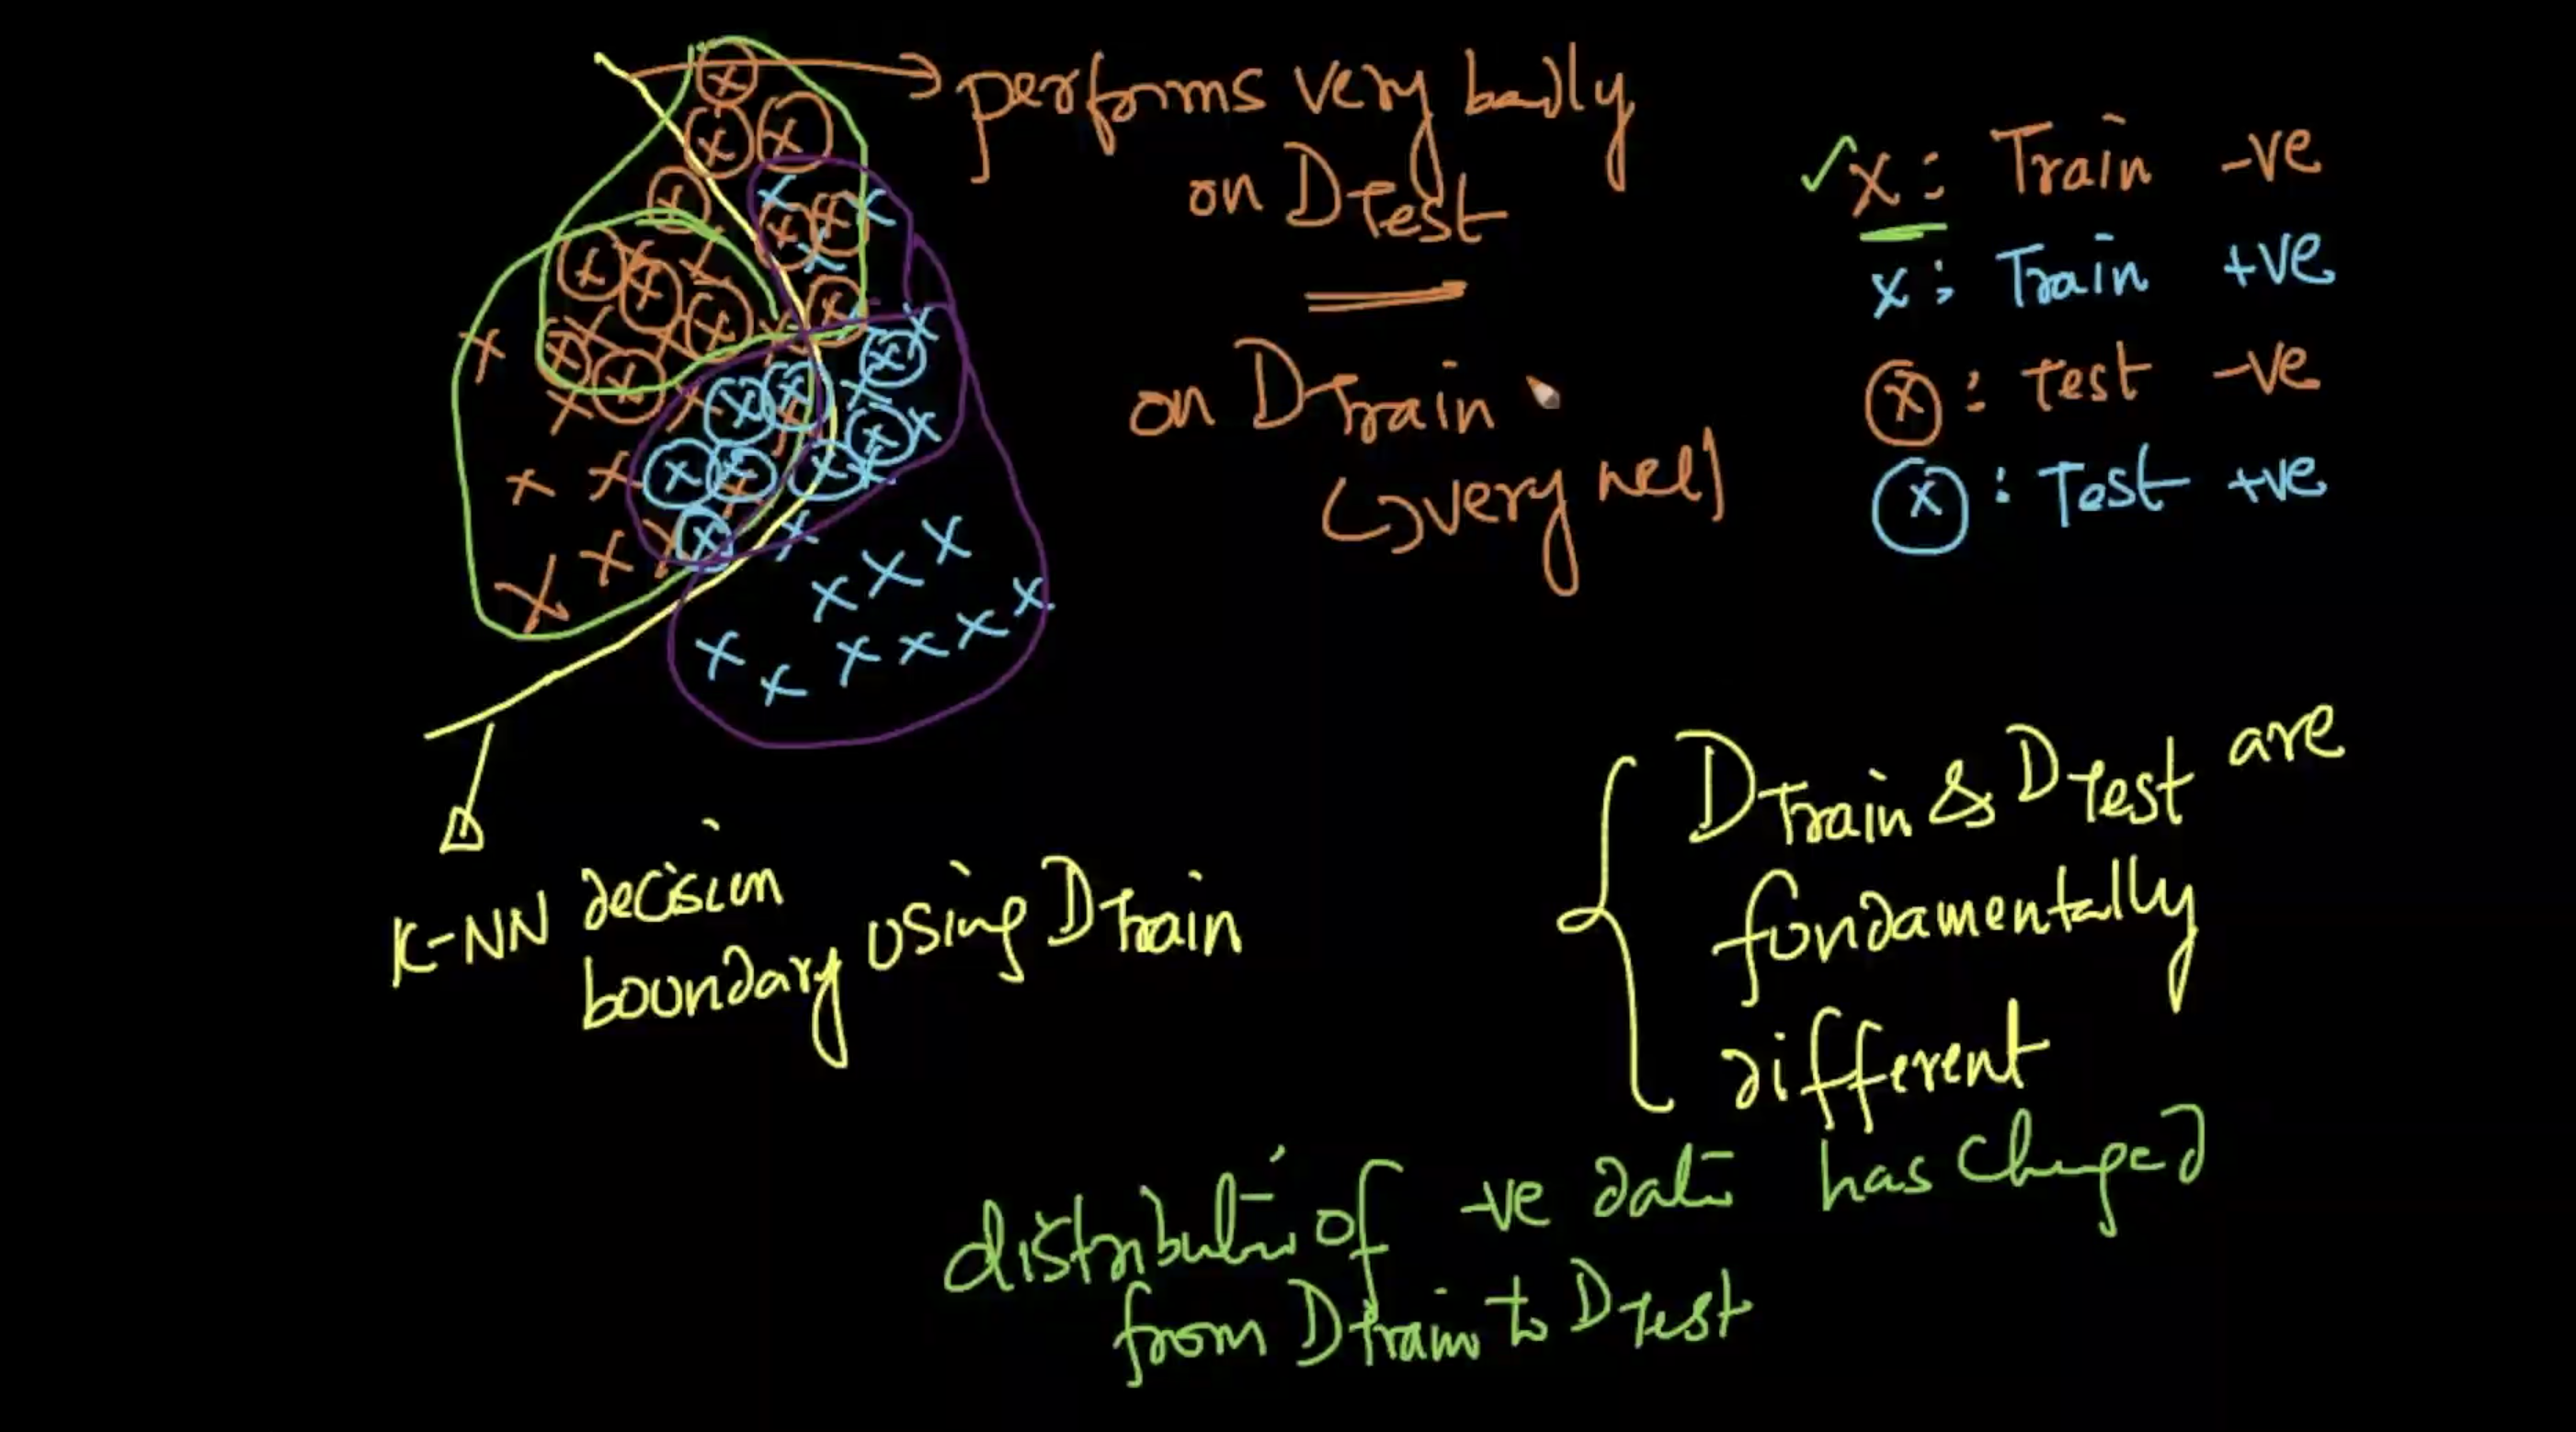 performs very badly
on DTest
on DTrain
very well
✓x: Train -ve
x: Train +ve
ⓧ: Test -ve
ⓧ: Test +ve
K-NN decision
boundary using DTrain
DTrain & DTest are
fundamentally
different
distributn of -ve data has changed
from DTrain to DTest